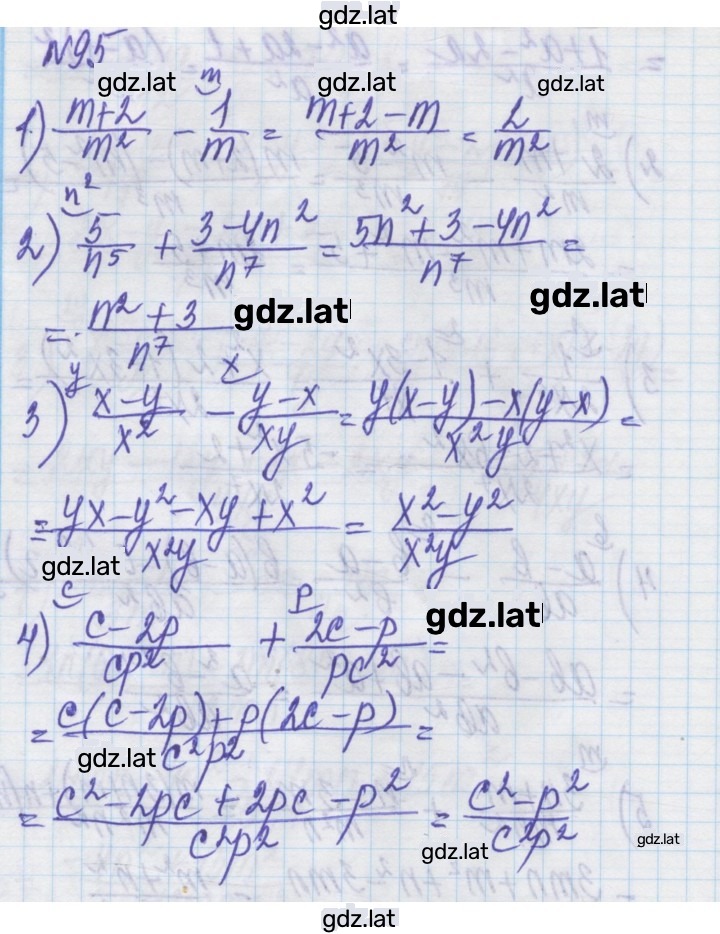 gdz.lat
№95
gdz.lat gdz.lat gdz.lat
1) (m+2)/m² - 1/m (m) = (m+2-m)/m² = 2/m²
2) 5/n⁵ (n²) + (3-4n²)/n⁷ = (5n²+3-4n²)/n⁷ =
= (n²+3)/n⁷ gdz.lat gdz.lat
3) (x-y)/x² (y) - (y-x)/xy (x) = (y(x-y)-x(y-x))/x²y =
= (yx-y²-xy+x²)/x²y = (x²-y²)/x²y
gdz.lat
4) (c-2p)/cp² (c) + (2c-p)/pc² (p) = gdz.lat
= (c(c-2p)+p(2c-p))/c²p² =
gdz.lat
= (c²-2pc+2pc-p²)/c²p² = (c²-p²)/c²p²
gdz.lat gdz.lat
gdz.lat